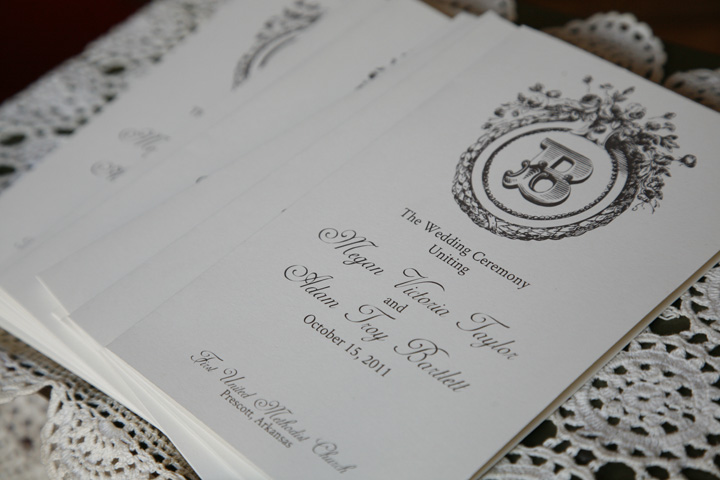 B
The Wedding Ceremony
Uniting
Megan Victoria Taylor
and
Adam Troy Bartlett
October 15, 2011
First United Methodist Church
Prescott, Arkansas